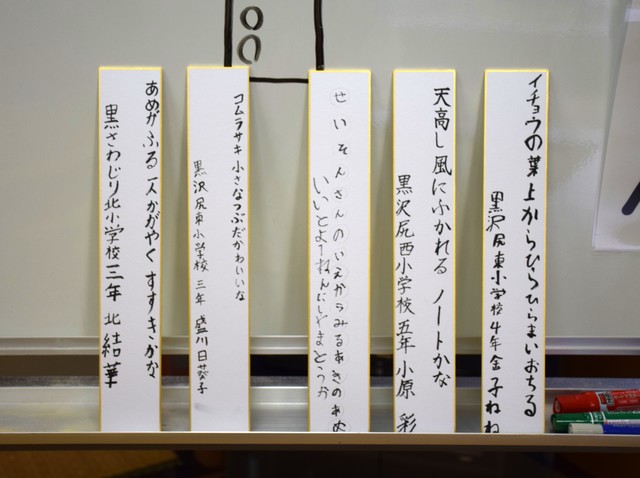 イチョウの葉上からひらひらまいおちる
黒沢尻東小学校4年金子ねね
天高し風にふかれるノートかな
黒沢尻西小学校五年小原彩
せいそんさんのいえからみるあきのあめ
いいとよ1ねんにしやまとうか
コムラサキ小さなつぶだかわいいな
黒沢尻東小学校三年盛川日葵子
あめがふる一人かがやくすすきかな
黒さわじり北小学校三年北結華